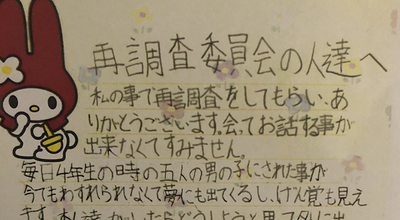 再調査委員会の人達へ
私の事で再調査をしてもらい、あ
りかとうございます。会ってお話する事が
出来なくてすみません。
毎日4年生の時の五人の男の子にされた事が
今でもわすれられなくて夢にも出てくるし、げん覚も見え
ます。